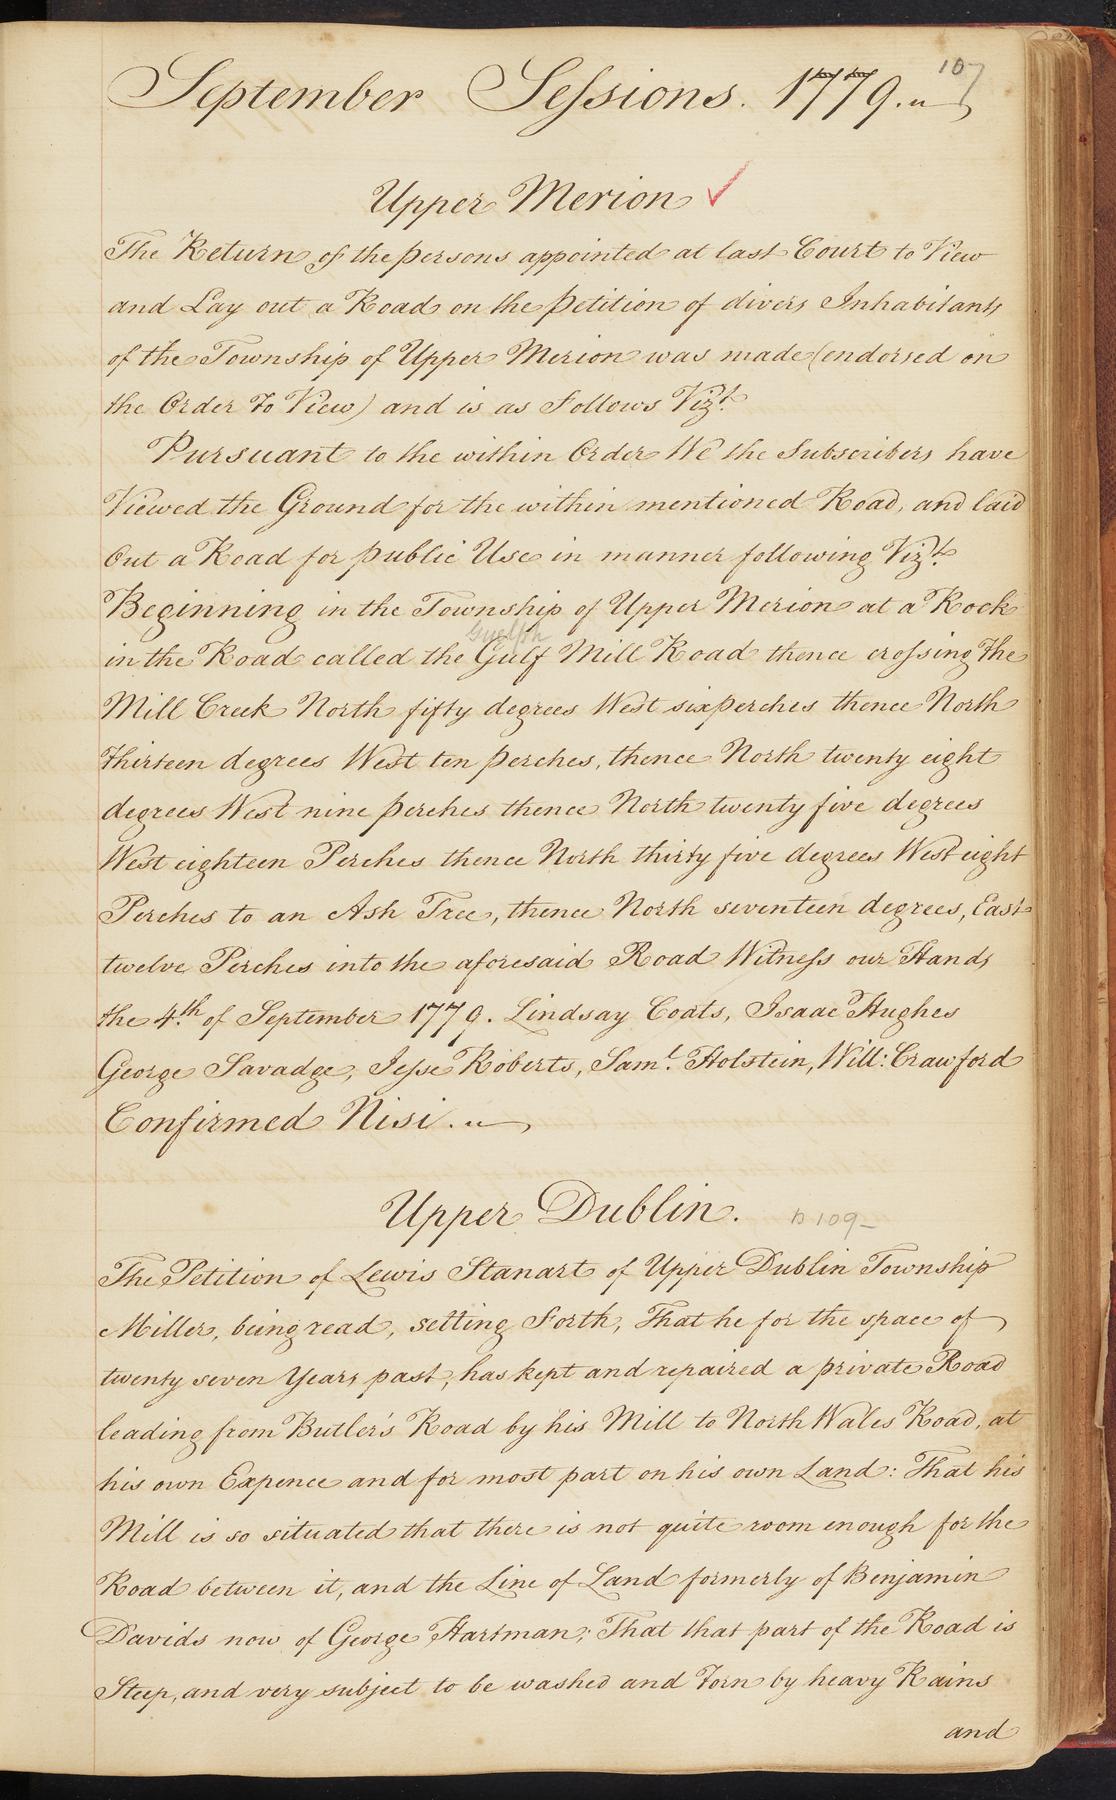 107
September Sessions. 1779.
Upper Merion ✓
The Return of the persons appointed at last Court to View
and Lay out a Road on the petition of divers Inhabitants
of the Township of Upper Merion was made (endorsed on
the Order To View) and is as Follows Vizt.
Pursuant to the within Order We the Subscribers have
Viewed the Ground for the within mentioned Road, and laid
Out a Road for public Use in manner following Vizt.
Beginning in the Township of Upper Merion at a Rock
Guelph
in the Road called the Gulf Mill Road thence crossing the
Mill Creek North fifty degrees West six perches thence North
thirteen degrees West ten perches, thence North twenty eight
degrees West nine perches thence North twenty five degrees
West eighteen Perches thence North thirty five degrees West eight
Perches to an Ash Tree, thence North seventeen degrees, East
twelve Perches into the aforesaid Road Witness our Hands
the 4.th of September 1779. Lindsay Coats, Isaac Hughes
George Savadge, Jesse Roberts, Saml. Holstein, Will: Crawford
Confirmed Nisi.
Upper Dublin. 109
The Petition of Lewis Stanart of Upper Dublin Township
Miller, being read, setting Forth, That he for the space of
twenty seven Years past, has kept and repaired a private Road
leading from Butler's Road by his Mill to North Wales Road, at
his own Expence and for most part on his own Land: That his
Mill is so situated that there is not quite room enough for the
Road between it, and the Line of Land formerly of Benjamin
Davids now of George Hartman; That that part of the Road is
Steep, and very subject to be washed and Torn by heavy Rains
and